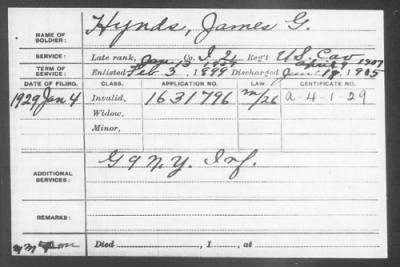 NAME OF SOLDIER: Hynds, James G.
SERVICE: Late rank, Co. I, 2 Reg't U.S. Cav
TERM OF SERVICE: Enlisted Feb 3, 1899 Discharged 1905
DATE OF FILING. CLASS. APPLICATION NO. LAW CERTIFICATE NO.
1929 Jan 4 Invalid, 1631796 m/26 a-4-1-29
Widow,
Minor,
ADDITIONAL SERVICES: G 9 N.Y. Inf.
REMARKS:
Died , 1 , at